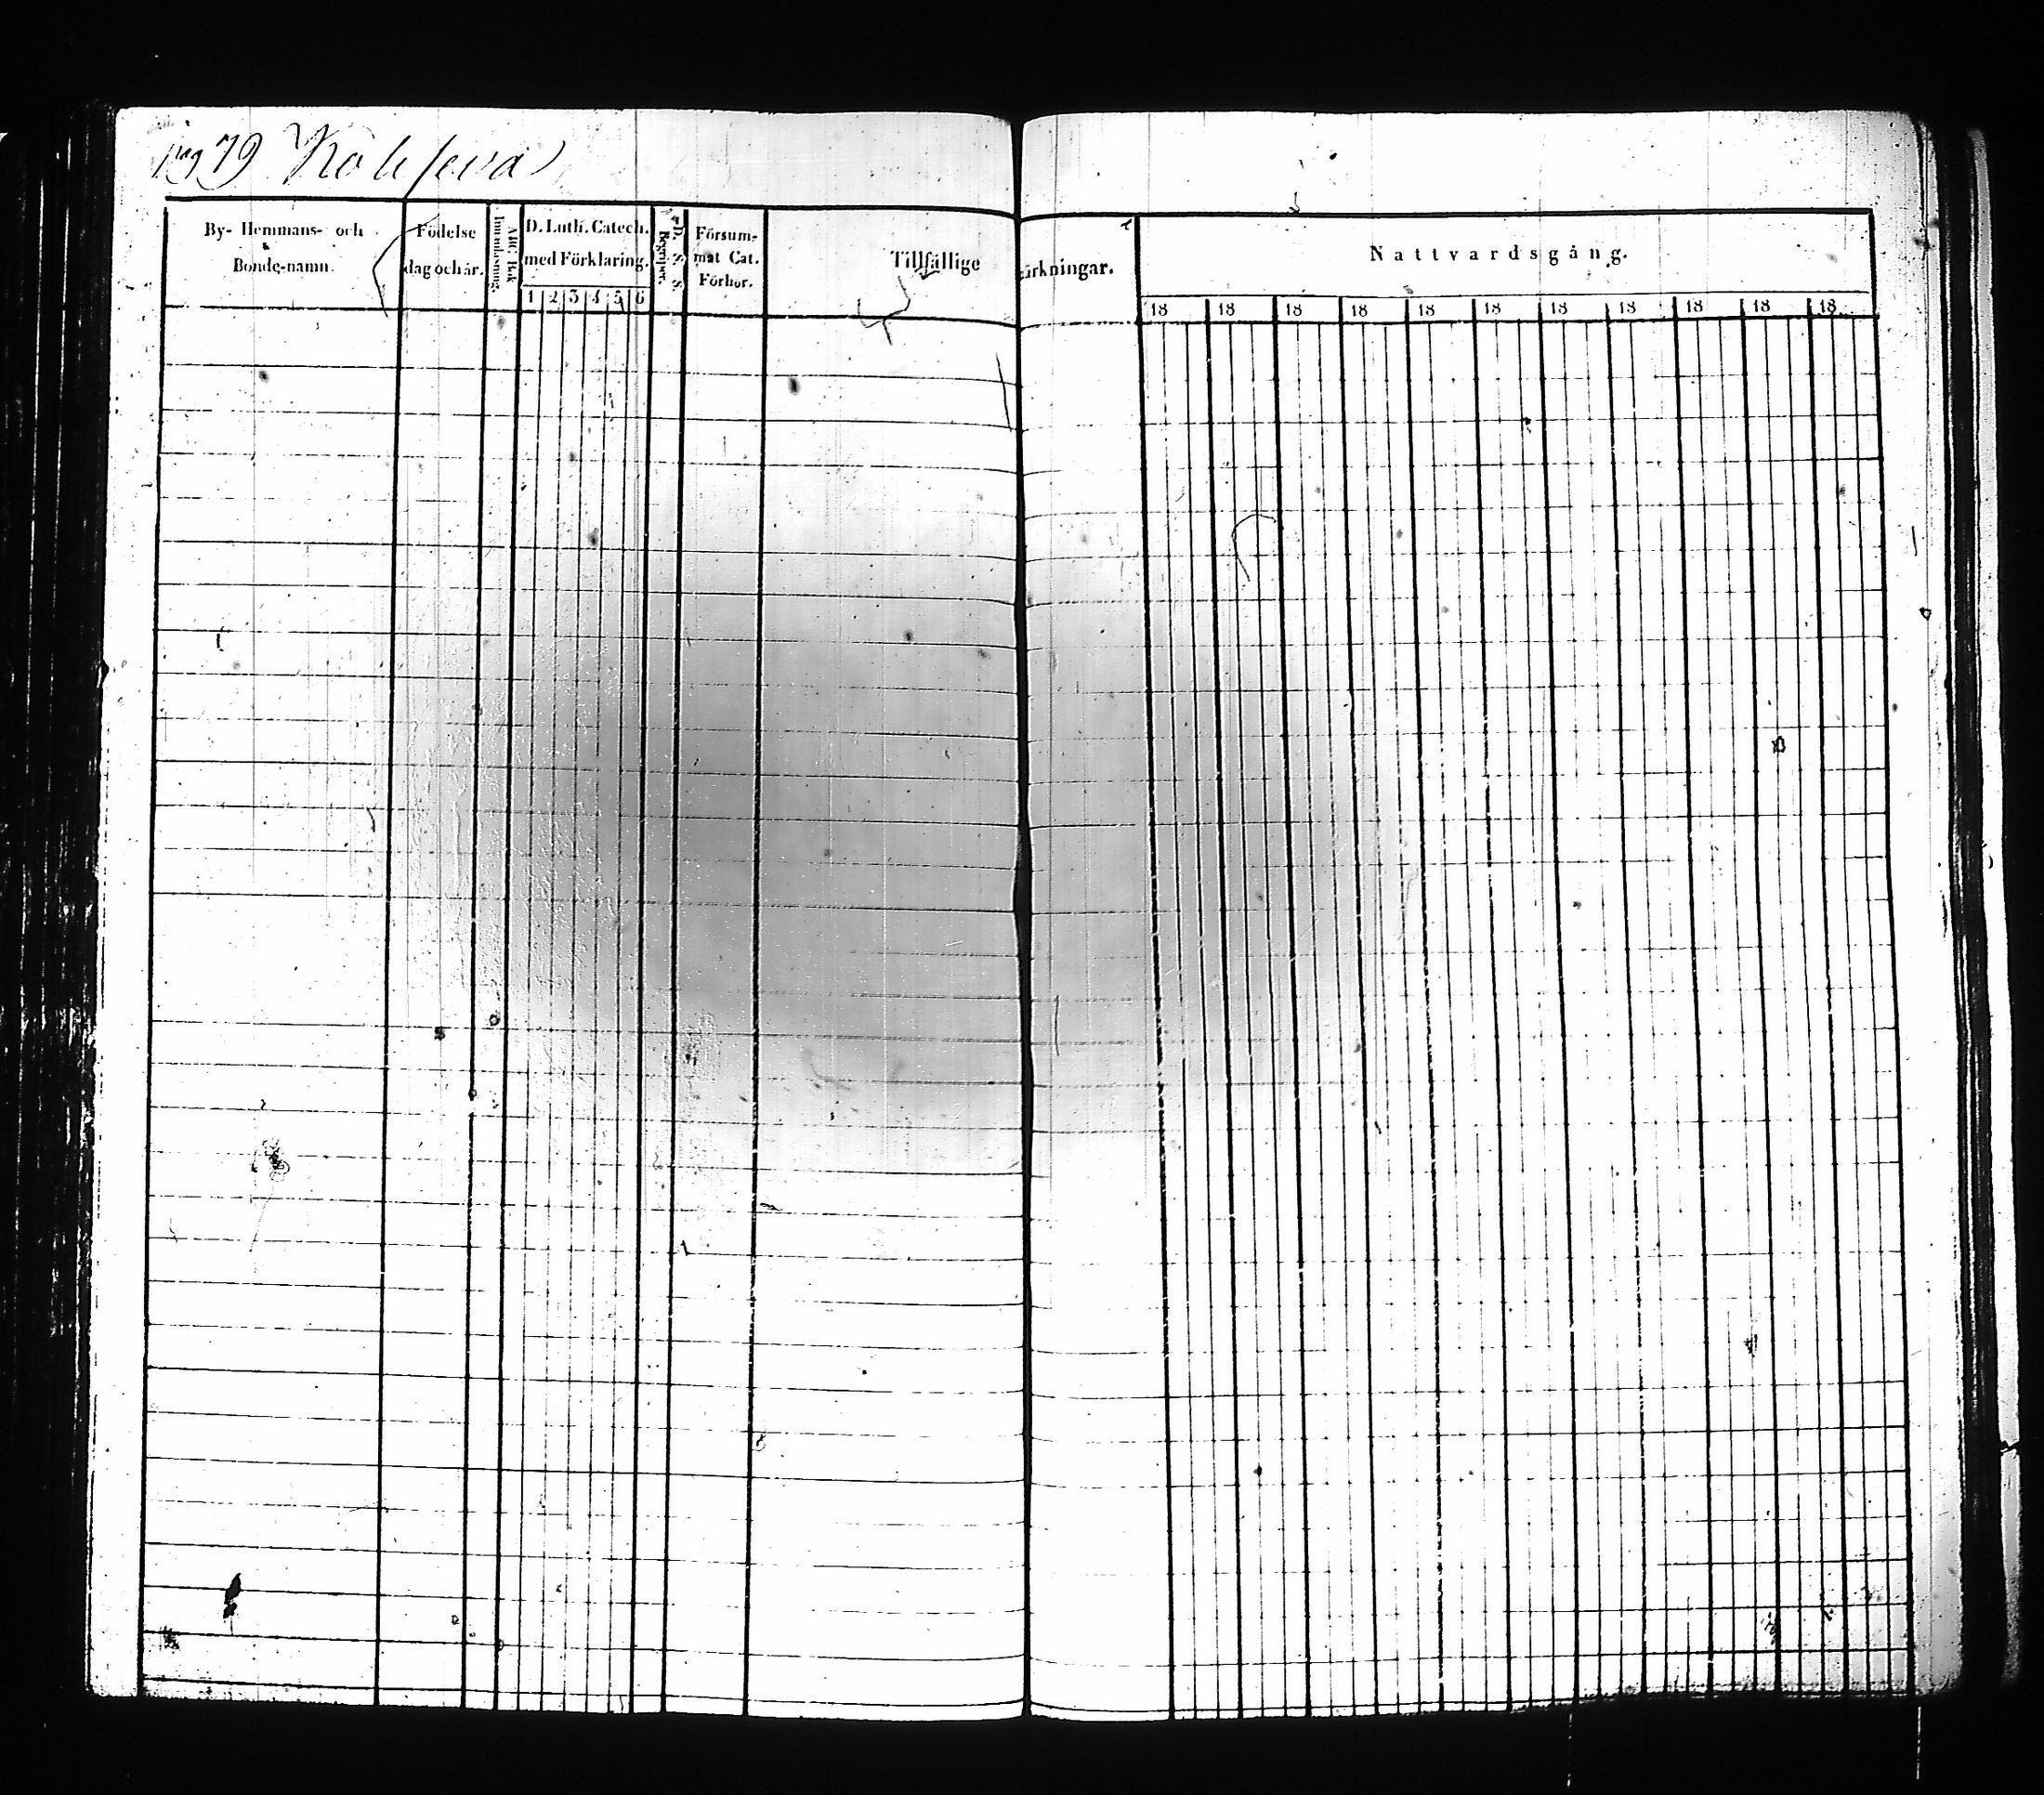 pag 79
By- Hemmans- och Bonde-namn.
Födelse dag och år.
ABC Bok Innanläsning.
D. Luth. Catech. med Förklaring.
1 2 3 4 5 6
D. S. S. Begriper.
Försum- mat Cat. Förhör.
Tillfällige
ärkningar.
Nattvardsgång.
18 18 18 18 18 18 18 18 18 18 18